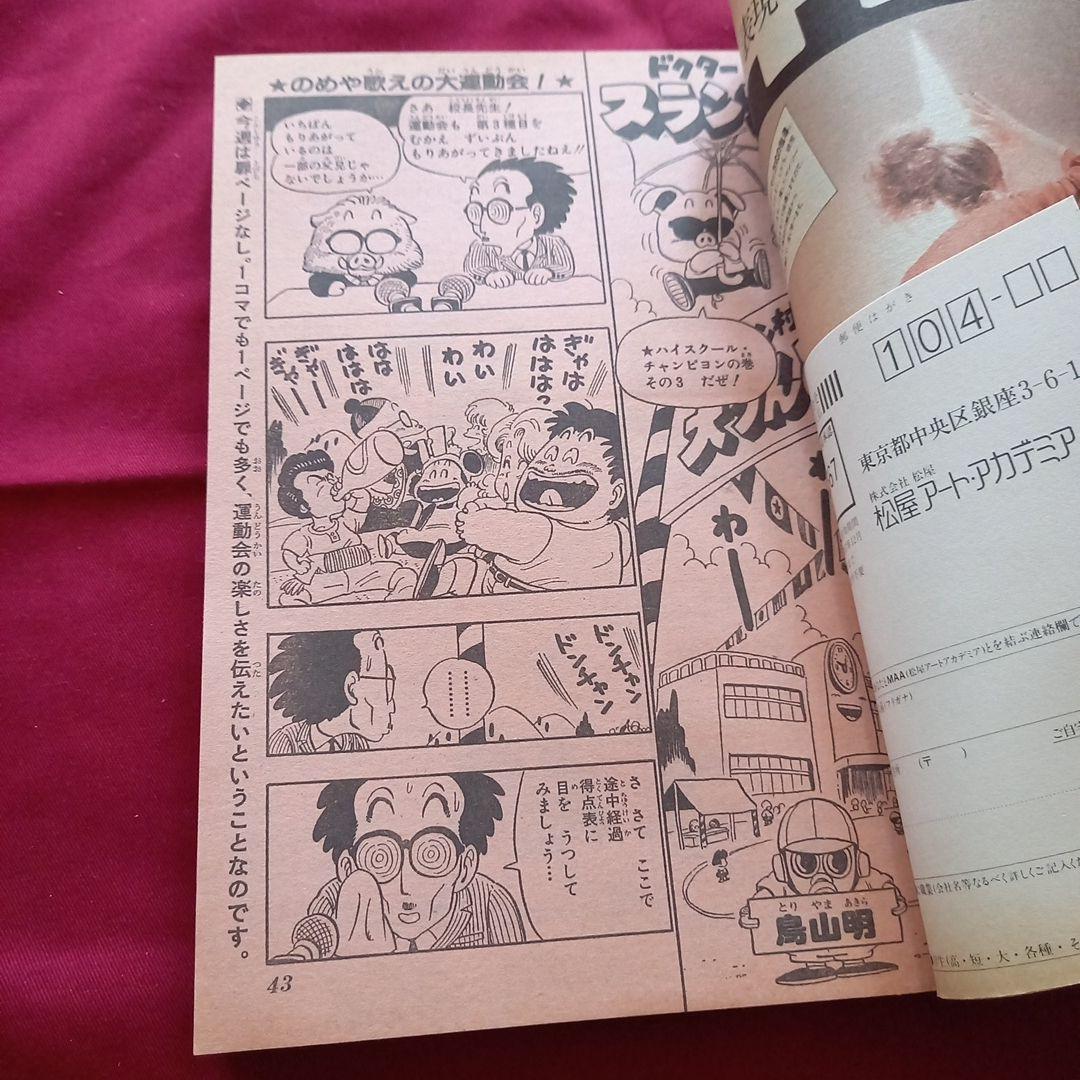 ★のめや歌えの大運動会！★
ドクター
スラン
さあ 校長先生！
運動会も 第3種目を
むかえ ずいぶん
もりあがってきましたねえ!!
いちばん
もりあがって
いるのは
一部の父兄じゃ
ないでしょうか…
◆今週は扉ページなし。1コマでも1ページでも多く、運動会の楽しさを伝えたいということなのです。
★ハイスクール・
チャンピヨンの巻
その3 だぜ！
ン村
ぎゃは
ははは
わい
わい
はは
ははは
ぎゃー
ぎゃー
わー
わ
ドンチャン
ドンチャン
さ さて ここで
途中経過
得点表に
目を うつして
みましょう…
とり やま あきら
鳥山明
43
表現
郵便はがき
104-
東京都中央区銀座3-6-1
株式会社 松屋
松屋アート・アカデミア
MAA(松屋アートアカデミア)とを結ぶ連絡欄で
(フリガナ)
(〒 )
(会社名等なるべく詳しくご記入くだ
(高・短・大・各種・そ